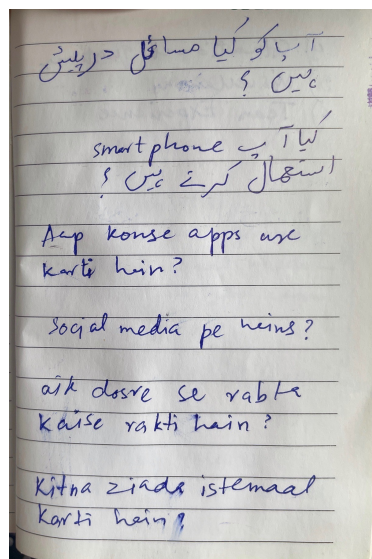 آپ کو کیا مسائل درپیش
ہیں ؟
کیا آپ smart phone
استعمال کرتے ہیں ؟
Aap konse apps use
karti hein?
Social media pe heins?
aik dosre se rabta
kaise rakti hain?
Kitna ziada istemaal
karti hein?